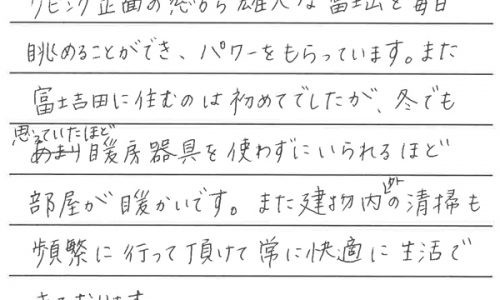 リビング正面の窓から雄大な富士山を毎日
眺めることができ、パワーをもらっています。また
富士吉田に住むのは初めてでしたが、冬でも
思っていたほど
あまり暖房器具を使わずにいられるほど
部屋が暖かいです。また建物内外の清掃も
頻繁に行って頂けて常に快適に生活で
きております